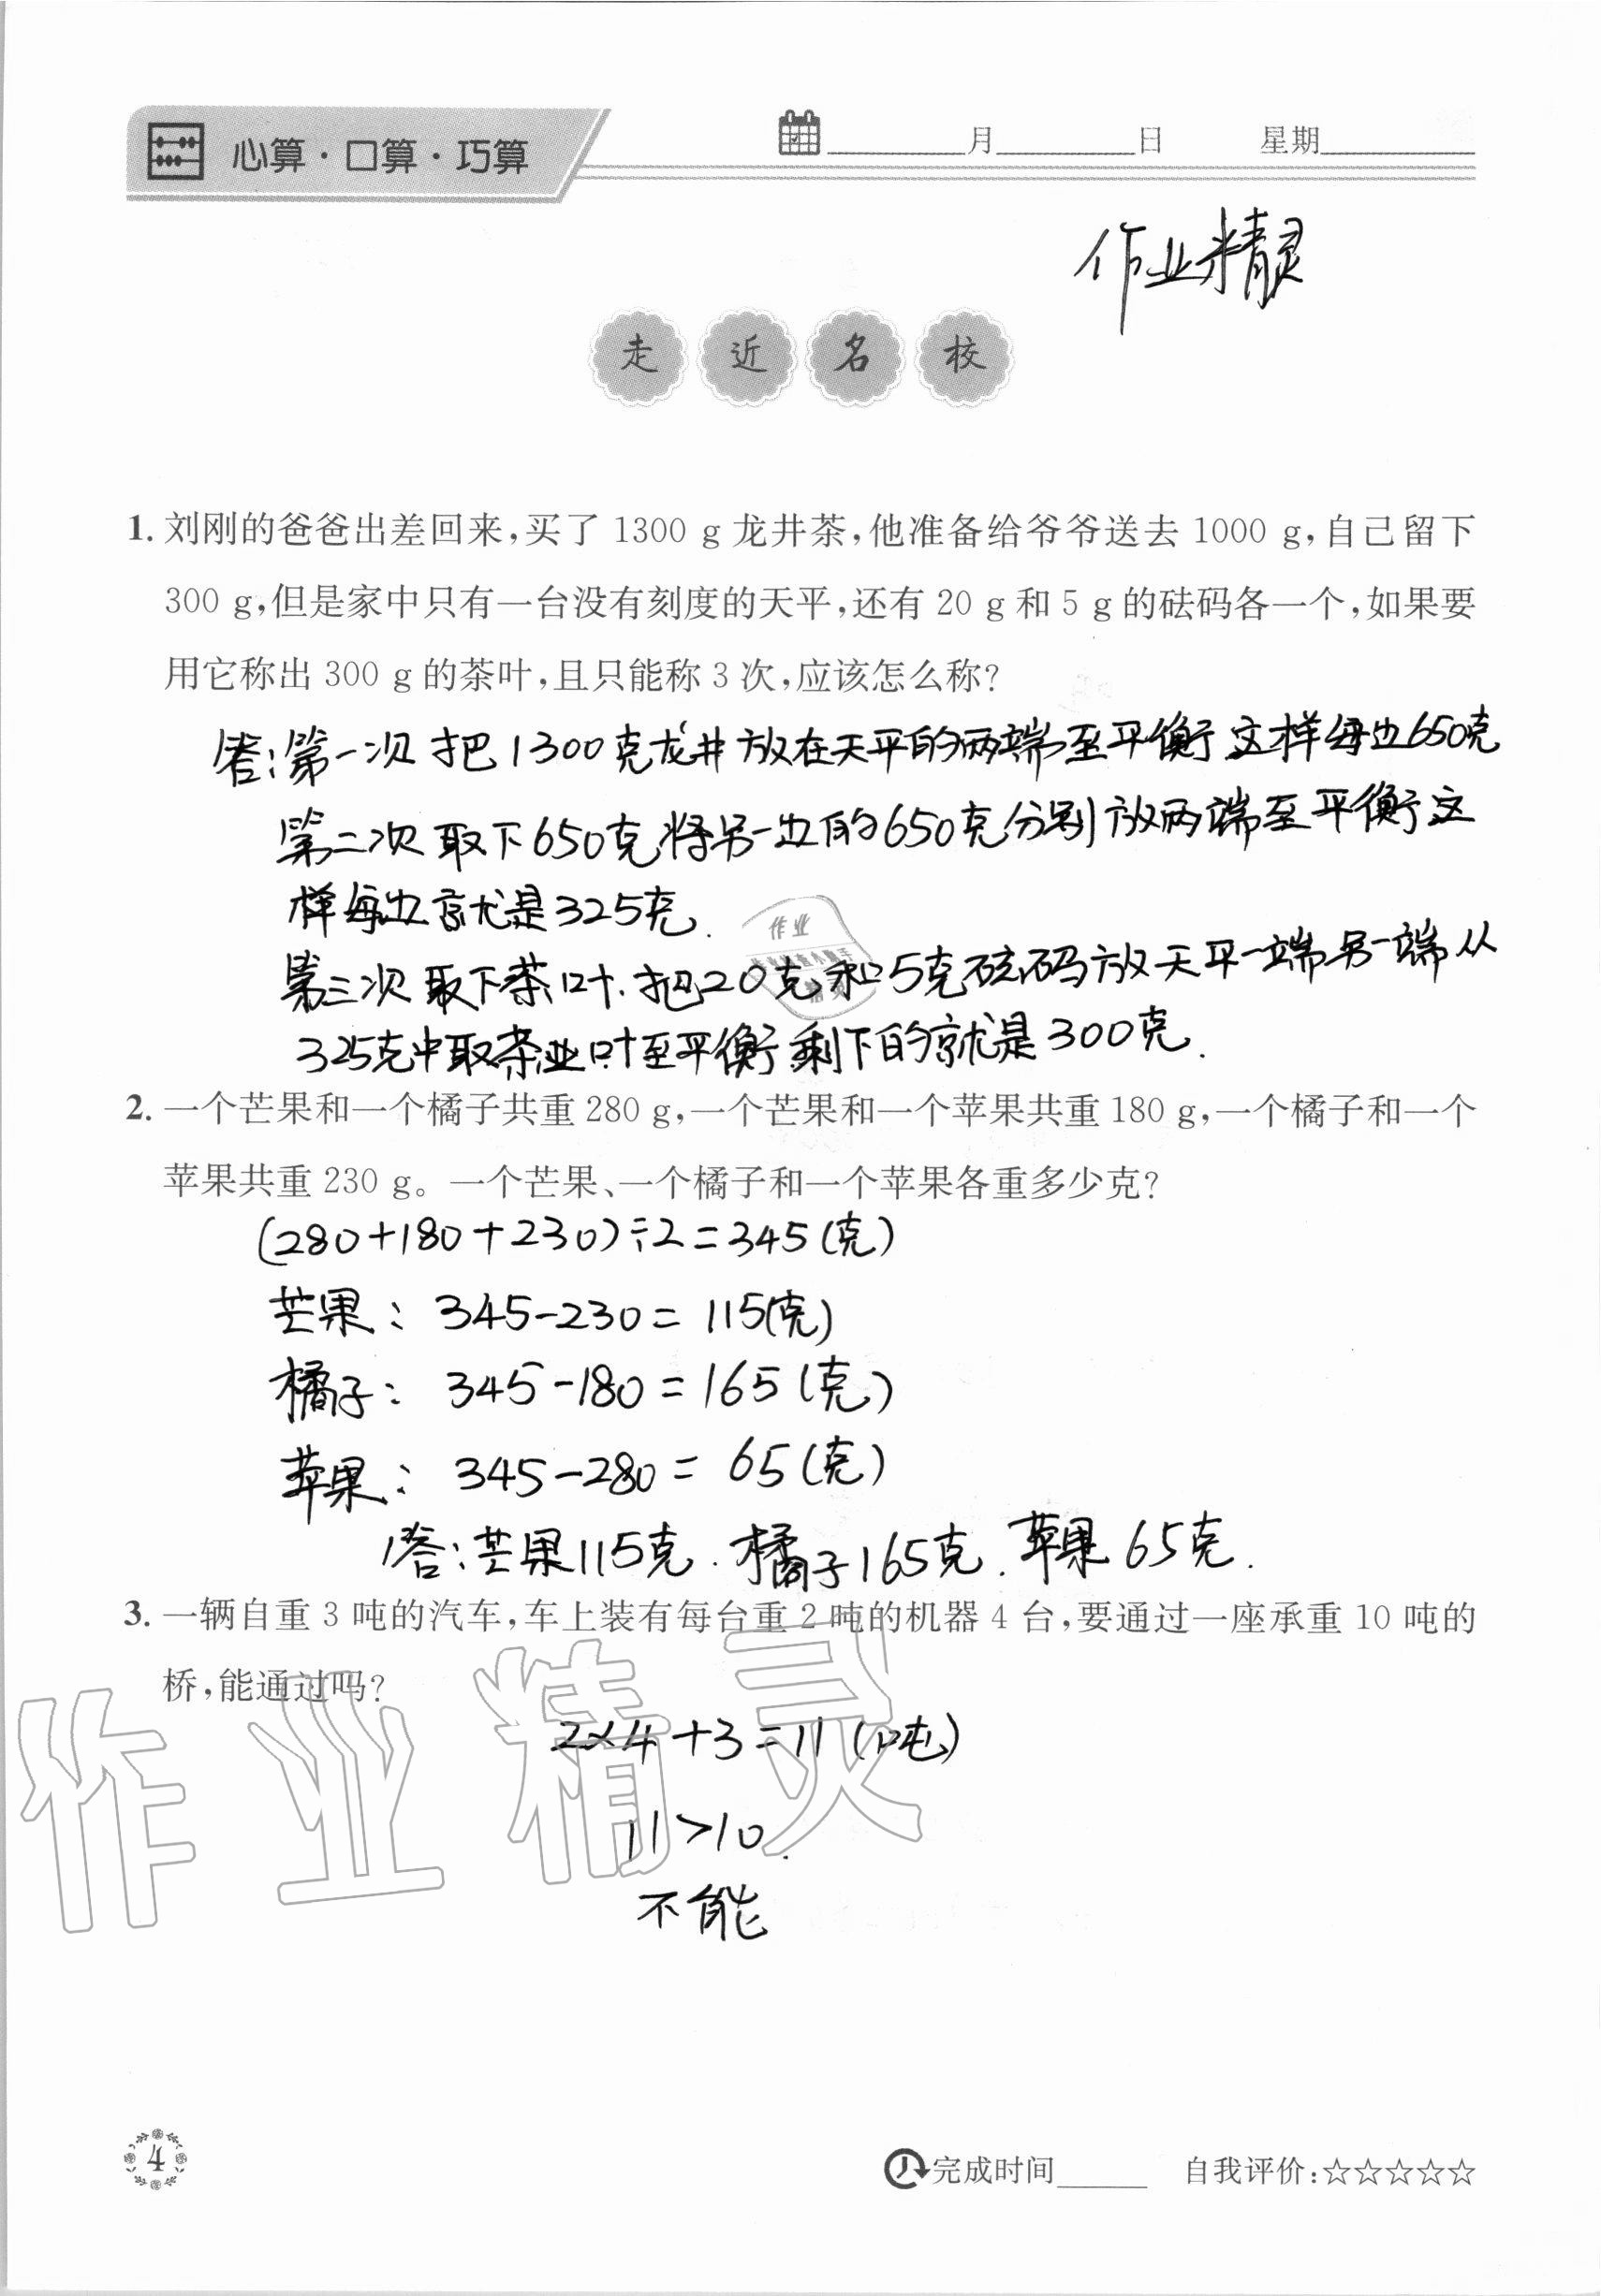 心算·口算·巧算
月 日 星期
作业精灵
走近名校
1. 刘刚的爸爸出差回来,买了 1300 g 龙井茶,他准备给爷爷送去 1000 g,自己留下
300 g,但是家中只有一台没有刻度的天平,还有 20 g 和 5 g 的砝码各一个,如果要
用它称出 300 g 的茶叶,且只能称 3 次,应该怎么称?
答:第一次把1300克龙井放在天平的两端至平衡这样每边650克
第二次取下650克,将另一边的650克分别放两端至平衡这
样每边就是325克.
作业
精灵
第三次取下茶叶.把20克和5克砝码放天平一端另一端从
325克中取茶叶至平衡剩下的就是300克.
2. 一个芒果和一个橘子共重 280 g,一个芒果和一个苹果共重 180 g,一个橘子和一个
苹果共重 230 g。一个芒果、一个橘子和一个苹果各重多少克?
(280+180+230)÷2=345(克)
芒果: 345-230=115(克)
橘子: 345-180=165(克)
苹果: 345-280=65(克)
答:芒果115克.橘子165克.苹果65克.
3. 一辆自重 3 吨的汽车,车上装有每台重 2 吨的机器 4 台,要通过一座承重 10 吨的
桥,能通过吗?
作业精灵
2×4+3=11(吨)
11>10.
不能
4
完成时间 自我评价:☆☆☆☆☆